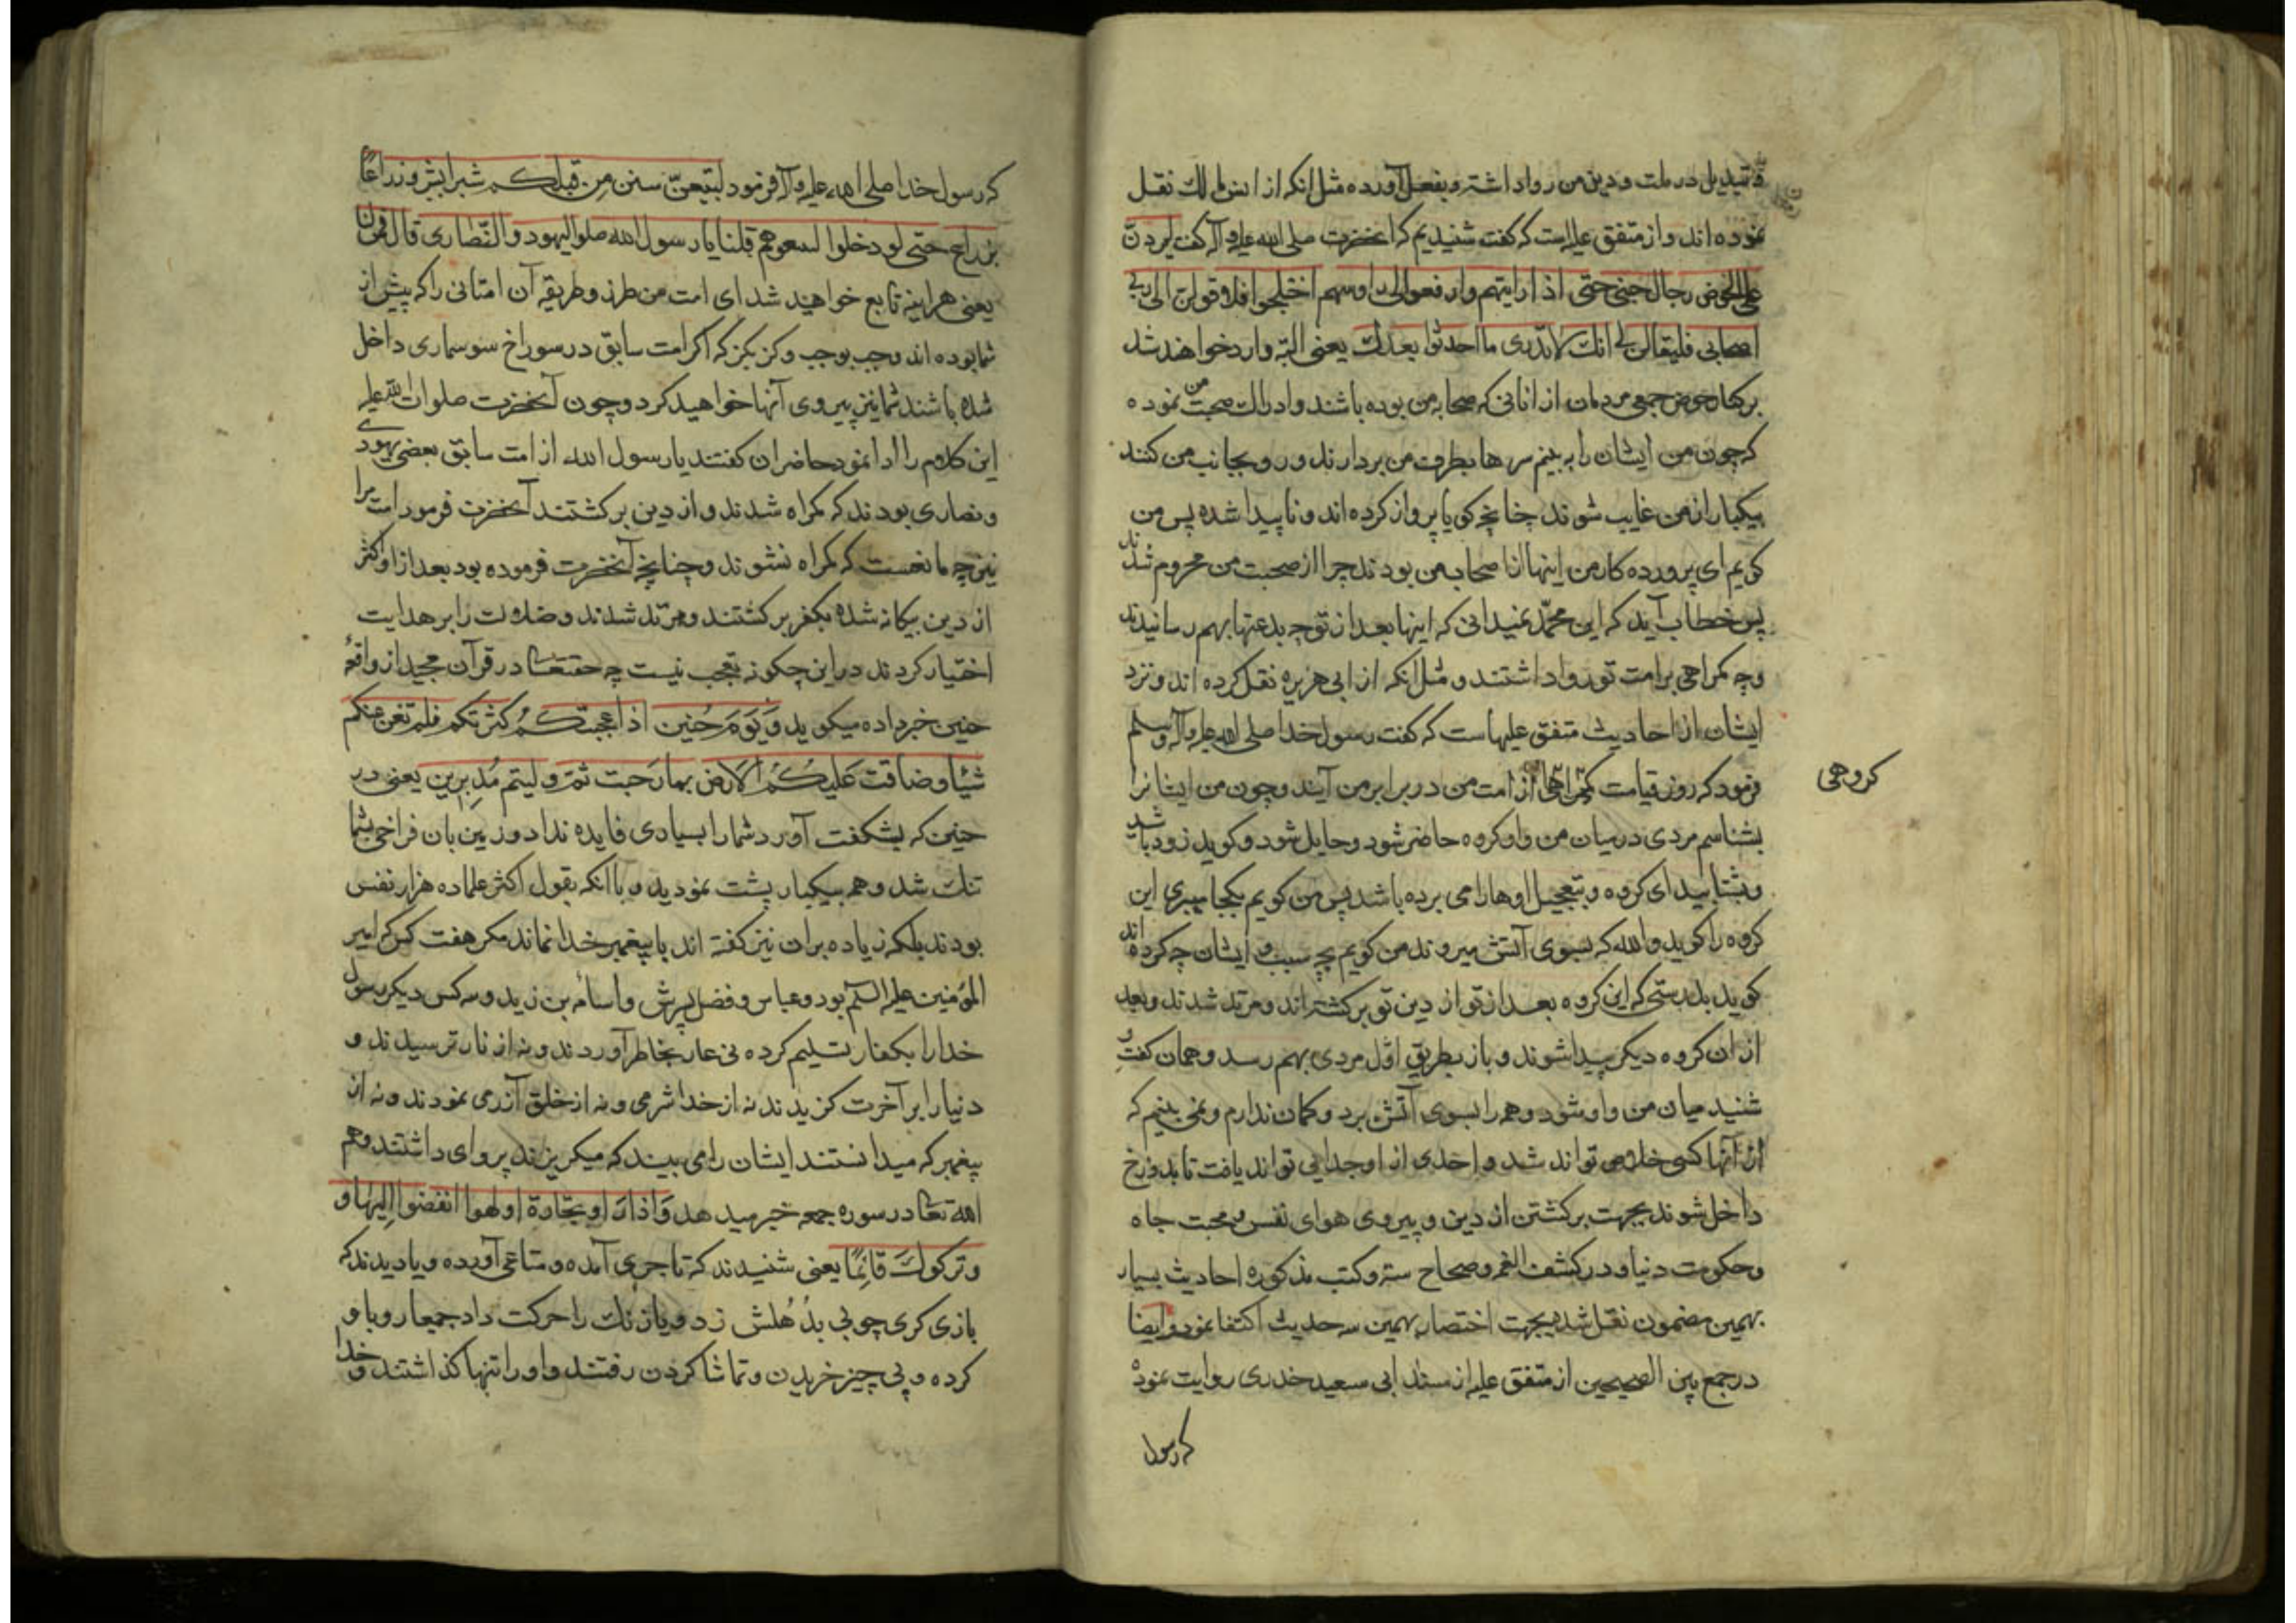 و تبدیل در ملت و دین من روا داشته و بفعل آورده مثل انکه از انس مالک نقل
نموده اند و از متفق علیه است که گفت شنیدیم که انحضرت صلی الله علیه و آله گفت لیردن
علی الحوض رجال حتی اذا رایتهم وارفعوا الی راوسهم اختلجوا فلاقولن الی ربی
اصحابی فلیقالن لی انک لا تدری ما احدثوا بعدک یعنی البته وارد خواهند شد
بر کنار حوض جمعی مردمان از انانی که صحابه من بوده باشند و ادراک صحبت من نموده
که چون من ایشان را به بینم سرها بطرف من بردارند و رو بجانب من کنند
بیکبار از من غایب شوند چنانچه کویا پرواز کرده اند و ناپیدا شده پس من
کویم ای پرورده کار من اینها از اصحاب من بودند چرا از صحبت من محروم شدند
پس خطاب آید که ای محمد نمیدانی که اینها بعد از تو چه بدعتها بهم رسانیدند
و چه کمراهی بر امت تو روا داشتند و مثل انکه از ابی هریره نقل کرده اند و نزد
ایشان از احادیث متفق علیهاست که گفت رسول خدا صلی الله علیه و آله و سلم
فرمود که روز قیامت از امت من در برابر من آیند و چون من اینانرا
کروهی
بشناسم مردی در میان من و او کروه حاضر شود و حایل شود و کوید زود باشید
و بشتابید ای کروه و بتعجیل اوها را می برده باشد پس من کویم بکجا میبری این
کروه را کوید والله که بسوی آتش میروند من کویم بچه سبب و ایشان چه کرده اند
کوید بدرستی که این کروه بعد از تو از دین تو برکشته اند و مرتد شدند و بعد
از ان کروه دیکر پیدا شوند و باز بطریق اول مردی بهم رسد و همان کفت و
شنید میان من و او شود و همه را بسوی آتش برد و کمان ندارم و نمی بینم که
از آنها کسی خلاص تواند شد و احدی از او جدایی تواند یافت تا بدوزخ
داخل شوند بجهت برکشتن از دین و پیروی هوای نفس و محبت جاه
و حکومت دنیا و در کشف الغمه و صحاح سته و کتب مذکوره احادیث بسیار
بهمین مضمون نقل شد بجهت اختصار بهمین سه حدیث اکتفا نمود و ایضا
در جمع بین الصحیحین از متفق علیه از مسند ابی سعید خدری روایت نموده
که رسول
که رسول خدا صلی الله علیه و آله فرمود لیتبعن سنن من قبلکم شبرا بشبر و ذراعا
بذراع حتی لو دخلوا لسعوهم قلنا یا رسول الله صلو الیهود و النصاری قال فمن
یعنی هراینه تابع خواهید شد ای امت من طرز و طریقه آن امتانی را که پیش از
شما بوده اند وجب بوجب و کز بکز که اکر امت سابق در سوراخ سوسماری داخل
شده باشند شما نیز پیروی آنها خواهید کرد و چون آنحضرت صلوات الله علیه
این کلام را ادا نمود حاضران کفتند یا رسول الله از امت سابق بعضی یهودی
و نصاری بودند که کمراه شدند و از دین برکشتند آنحضرت فرمود امت مرا
نیز چه مانعست که کمراه نشوند و چنانچه آنحضرت فرموده بود بعد از او اکثر
از دین بیکانه شده بکفر برکشتند و مرتد شدند و ضلالت را بر هدایت
اختیار کردند در این چکونه تعجب نیست چه حقتعالی در قرآن مجید از واقعه
حنین خبر داده میکوید وَیَوْمَ حُنین اذا عجبتکم کثرتکم فلم تغن عنکم
شیئا وضاقت علیکم الارض بما رحبت ثم ولیتم مُدبرین یعنی در
حنین که بشکفت آورد شما را بسیاری فایده نداد و زمین بان فراخی بشما
تنک شد و همه بیکبار پشت نمودید و با انکه بقول اکثر علما ده هزار نفس
بودند بلکه زیاده بر ان نیز کفته اند با پیغمبر خدا نماند مکر هفت کس که امیر
المؤمنین علیه السلم بود و عباس و فضل پسرش و اسامه بن زید و سه کس دیکر رسول
خدا را بکفار تسلیم کرده نی عار بخاطر آوردند و نه از نار ترسیدند و
دنیا را بر آخرت کزیدند نه از خدا شرمی و نه از خلق آزرمی نمودند و نه از
پیغمبر که میدانستند ایشان را می بیند که میکریزند پروای داشتند و هم
الله تعالی در سوره جمعه خبر میدهد وَاذا راو تجارة او لهوا انفضوا الیها و
وترکوک قائمًا یعنی شنیدند که تاجری آمده و متاعی آورده و یا دیدند که
بازی کری چوبی بدُهلش زد و یا زنک را حرکت داد جمیعا رو با و
کرده و پی چیز خریدن و تماشا کردن رفتند و او را تنها کذاشتند و خدا